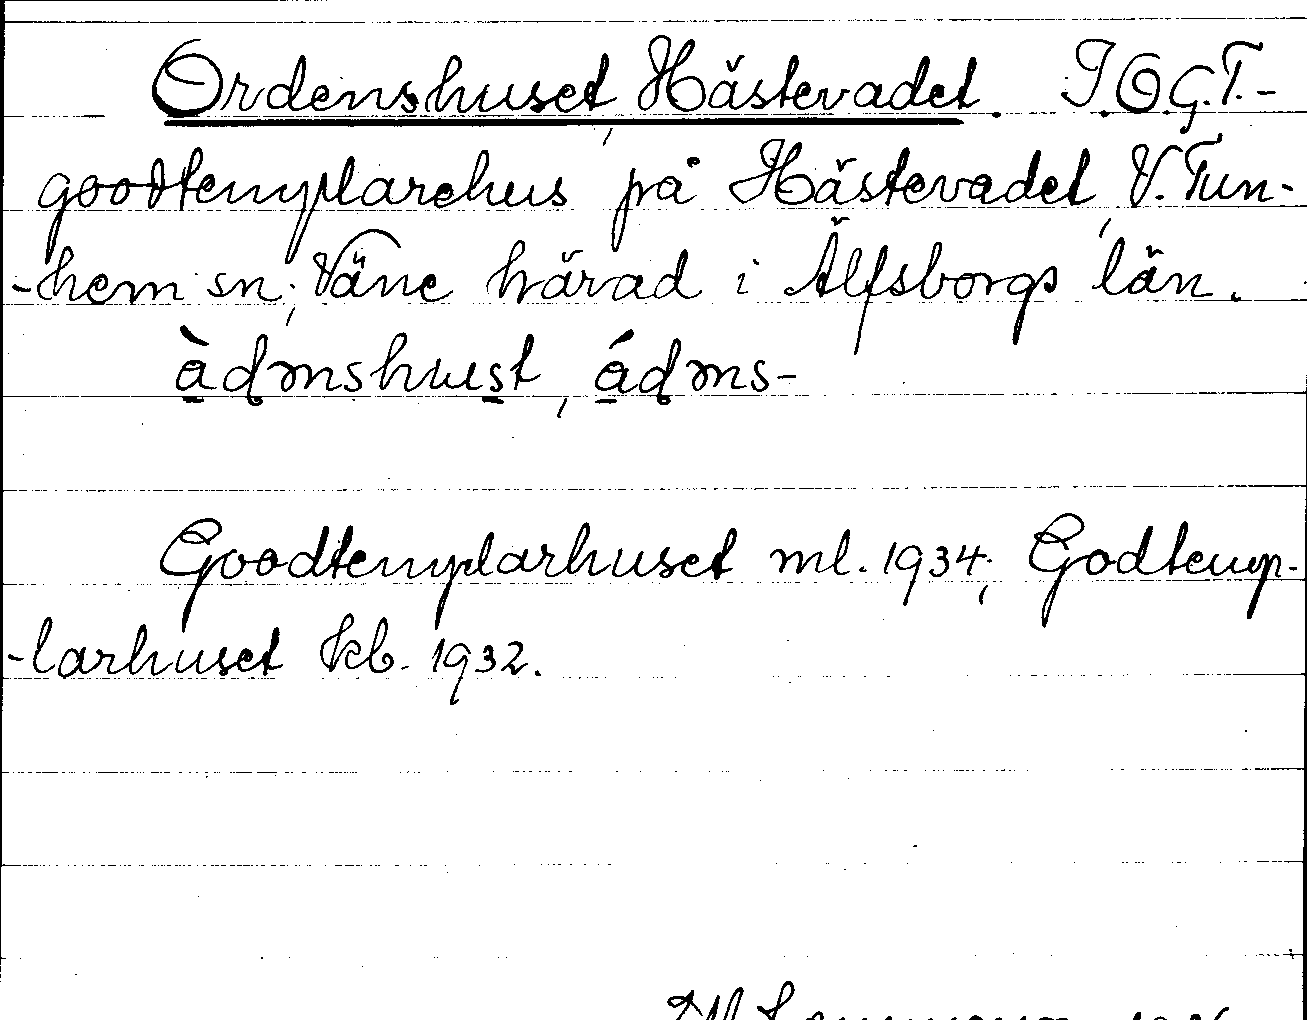 Ordenshuset, Hästevadet. I.O.G.T.-
goodtemplarehus på Hästevadet, V. Tun-
-hem sn; Väne härad i Älfsborgs län.
àɖmshust, áɖms-
Goodtemplarhuset ml. 1934; Godtemp-
-larhuset kb. 1932.